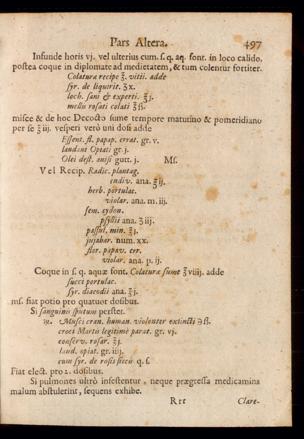 Pars Altera. 497
Infunde horis vj. vel ulterius cum. s. q. aq. font. in loco calido,
postea coque in diplomate ad medietatem, & tum colentur fortiter.
Colaturæ recipe ℥. vitii. adde
syr. de liquirit. ℥x.
loch. sani & experti. ℥j.
mellis rosati colati ℥ß.
misce & de hoc Decocto sume tempore matutino & pomeridiano
per se ℥iij. vesperi verò uni dosi adde
Essent. fl. papap. errat. gr. v.
laudani Opiati gr. j.
Olei dest. anisi gutt. j. Ms.
Vel Recip. Radic. plantag.
endiv. ana. ℥ij.
herb. portulac.
violar. ana. m. iij.
sem. cydon.
psyllii ana. ℥iij.
passul. min. ℥j.
jujubar. num. xx.
flor. papav. err.
violar. ana. p. ij.
Coque in s. q. aquæ font. Colaturæ sume ℥viiij. adde
succi portulac.
syr. diacodii ana. ℥j.
ms. fiat potio pro quatuor dosibus.
Si sanguinis sputum perstet.
℞. Musci cran. human. violenter extincti ℈ß.
croci Martis legitimè parat. gr. vj.
conserv. rosar. ℥j.
laud. opiat. gr. iiij.
cum syr. de rosis siccis q. s.
Fiat elect. pro 2. dosibus.
Si pulmones ultrò infestentur, neque prægressa medicamina
malum abstulerint, sequens exhibe.
Rrr Clare-